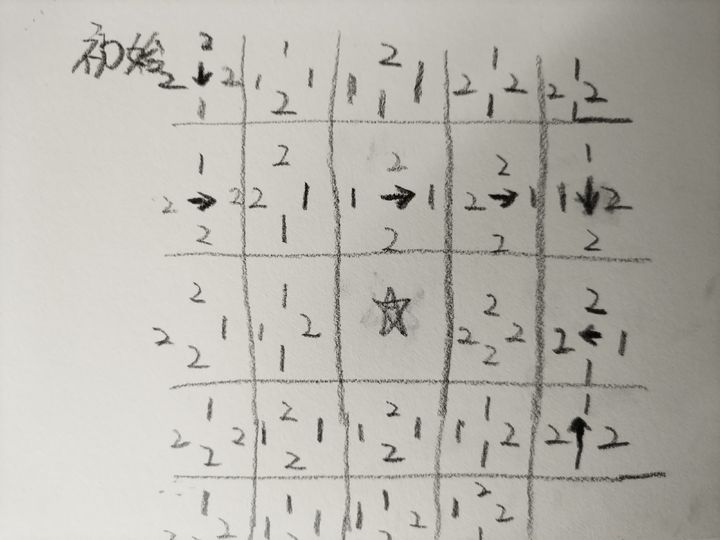 初始
2 1 2 1 1
2 ↓ 2 1 1 1 1 2 2 2 2
1 2 1 1 1
1 2 2 2 1
2 → 2 2 1 1 → 1 2 → 1 1 ↓ 2
2 1 2 2 2
2 1 ☆ 2 2
2 1 1 2 2 2 2 ← 1
2 1 2 1
1 2 2 1 1
2 2 1 1 1 1 1 2 2 ↑ 2
2 2 2 1
1 1 1 2
2 1 1 1 2 1 2